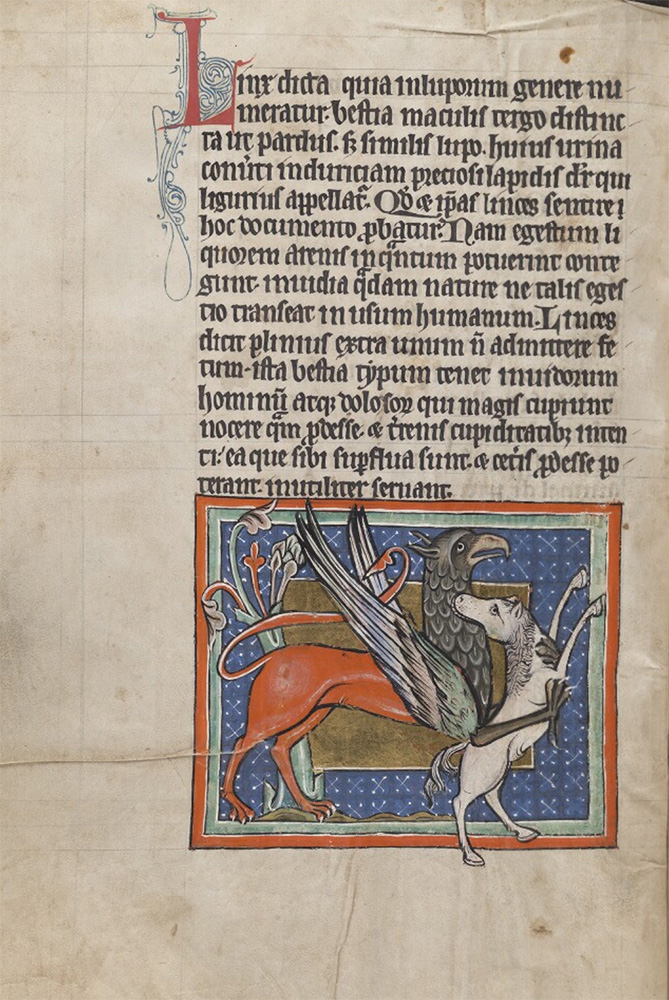 Linx dicta quia in luporum genere nu
meratur. bestia maculis tergo distinc
ta ut pardus. sʒ similis lupo. huius urina
conu͛ti in duriciam preciosi lapidis dr̄ qui
ligurius appellat᷑. Qd̄ & ip̄as linces sentire ı
hoc documento ꝓbatur. Nam egestum li
quorem arenis in q̄ntum potuerint conte
gunt. inuidia q̄dam nature ne talis eges
tio transeat in usum humanum. Linces
dicit plinius extra unum n̄ admittere fe
tum. ista bestia typum tenet inuidorum
hominū atqꝫ dolosoꝝ qui magis cupiunt
nocere q̄m ꝓdesse. & t͛renis cupiditatibꝫ inten
ti. ea que sibi suꝑflua sunt. & cet͛is ꝓdesse po
terant. inutiliter seruant.